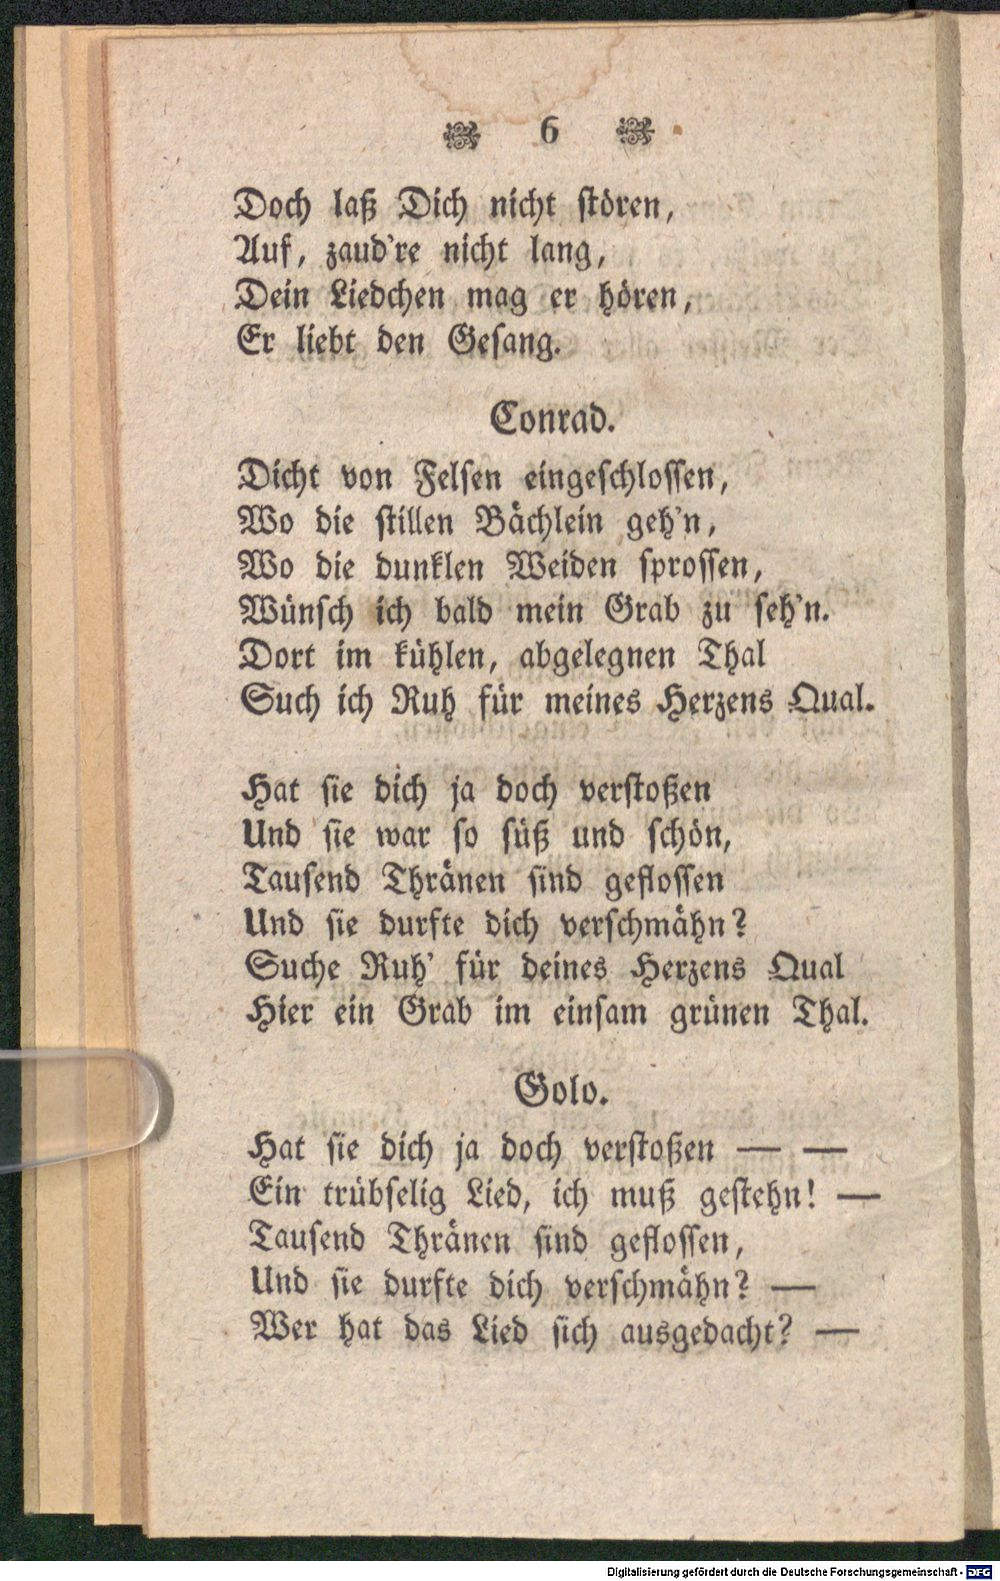 6
Doch laß Dich nicht stören,
Auf, zaud're nicht lang,
Dein Liedchen mag er hören,
Er liebt den Gesang.
Conrad.
Dicht von Felsen eingeschlossen,
Wo die stillen Bächlein geh'n,
Wo die dunklen Weiden sprossen,
Wünsch ich bald mein Grab zu seh'n.
Dort im kühlen, abgelegnen Thal
Such ich Ruh für meines Herzens Qual.
Hat sie dich ja doch verstoßen
Und sie war so süß und schön,
Tausend Thränen sind geflossen
Und sie durfte dich verschmähn?
Suche Ruh' für deines Herzens Qual
Hier ein Grab im einsam grünen Thal.
Golo.
Hat sie dich ja doch verstoßen — —
Ein trübselig Lied, ich muß gestehn! —
Tausend Thränen sind geflossen,
Und sie durfte dich verschmähn? —
Wer hat das Lied sich ausgedacht? —
Digitalisierung gefördert durch die Deutsche Forschungsgemeinschaft - DFG